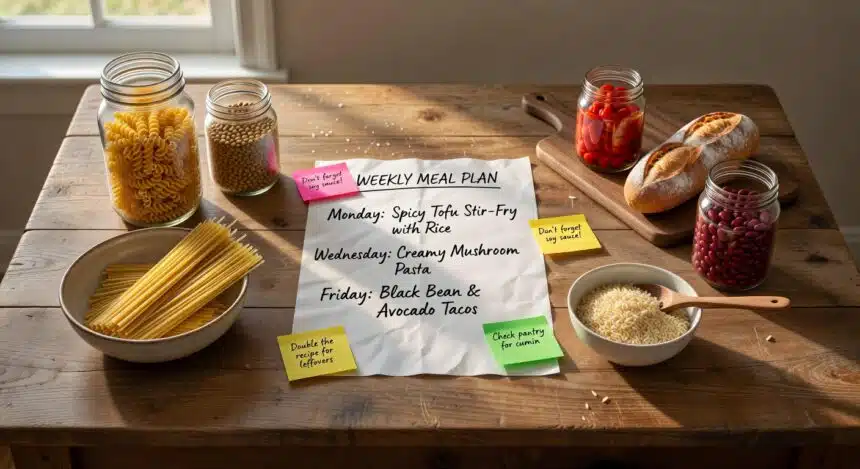 Don't forget
soy sauce!
WEEKLY MEAL PLAN
Monday: Spicy Tofu Stir-Fry
with Rice
Don't forget
soy sauce!
Wednesday: Creamy Mushroom
Pasta
Friday: Black Bean &
Avocado Tacos
Double the
recipe for
leftovers
Check pantry
for cumin